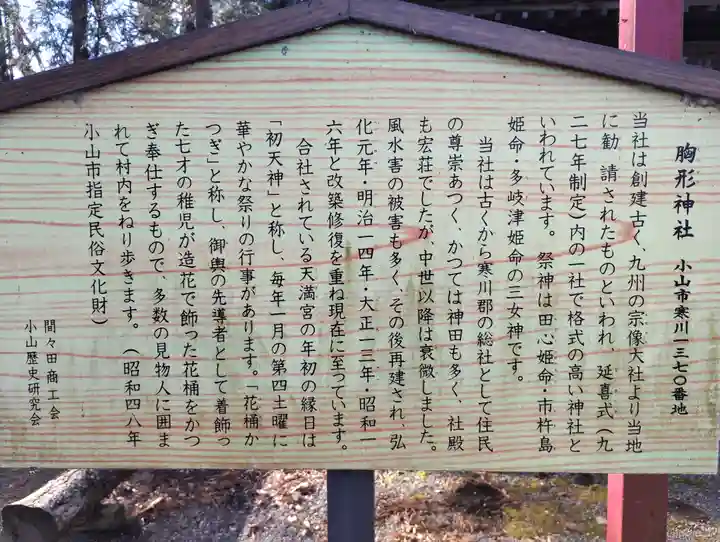 胸形神社　小山市寒川一三七〇番地
当社は創建古く、九州の宗像大社より当地
に勧　請されたものといわれ、延喜式（九
二七年制定）内の一社で格式の高い神社と
いわれています。祭神は田心姫命・市杵島
姫命・多岐津姫命の三女神です。
　当社は古くから寒川郡の総社として住民
の尊崇あつく、かつては神田も多く、社殿
も宏荘でしたが、中世以降は衰微しました。
風水害の被害も多く、その後再建され、弘
化元年・明治一四年・大正一三年・昭和一
六年と改築修復を重ね現在に至っています。
　合社されている天満宮の年初の縁日は
「初天神」と称し、毎年一月の第四土曜に
華やかな祭りの行事があります。「花桶か
つぎ」と称し、御輿の先導者として着飾っ
た七才の稚児が造花で飾った花桶をかつ
ぎ奉仕するもので、多数の見物人に囲ま
れて村内をねり歩きます。（昭和四八年
小山市指定民俗文化財）
間々田商工会
小山歴史研究会